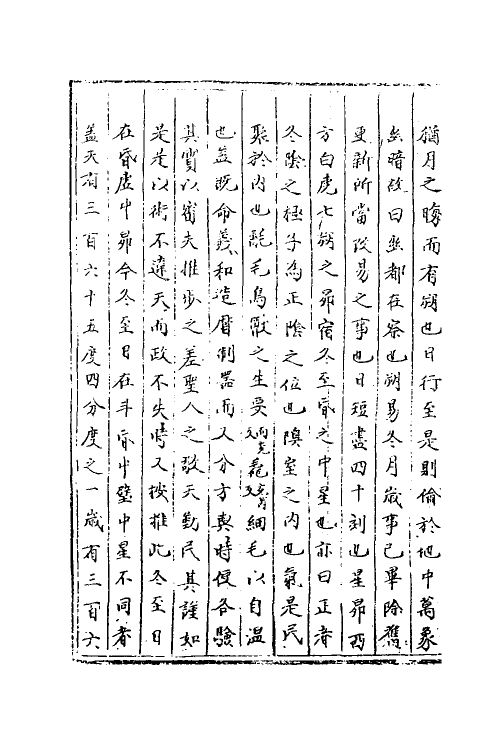 猶月之晦而有朔也日行至是則淪於地中萬象
幽暗故曰幽都在察也朔易冬月歲事已畢除舊
更新所當改易之事也日短晝四十刻也星昴西
方白虎七宿之昴宿冬至昏之中星也亦曰正者
冬陰之極子為正陰之位也隩室之內也氣寒民
聚於內也氄毛鳥獸之生耎毳細毛以自溫
也蓋既命羲和造曆制器而又分方與時使各驗
其實以審夫推步之差聖人之敬天勤民其謹如
是是以術不違天而政不失時又按推此冬至日
在虛昏中昴今冬至日在斗昏中壁中星不同者
蓋天有三百六十五度四分度之一歲有三百六